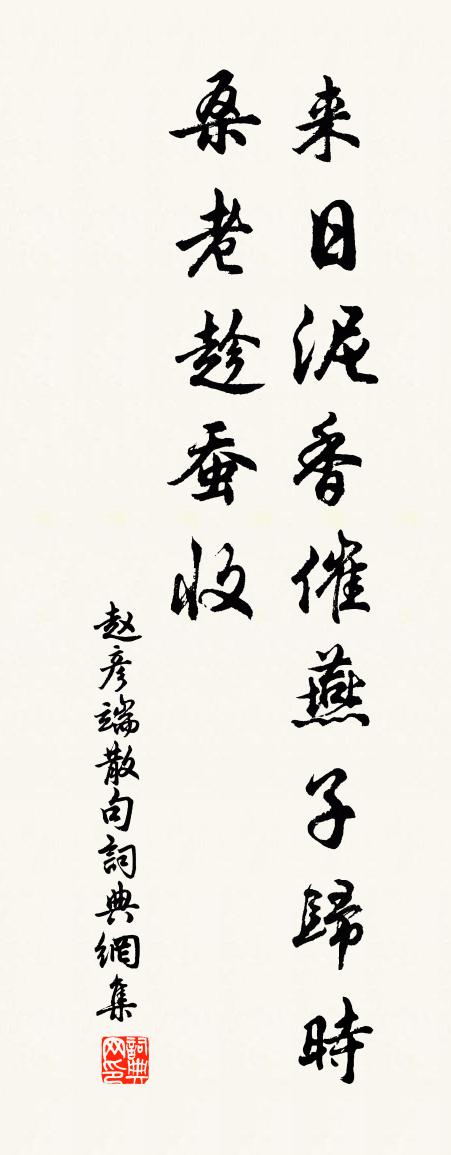 来日泥香催燕子歸時
桑老趁蚕收
赵彦端散句詞典網集
詞典网印